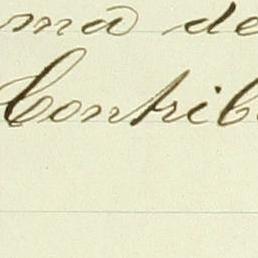 ma de
Contrib